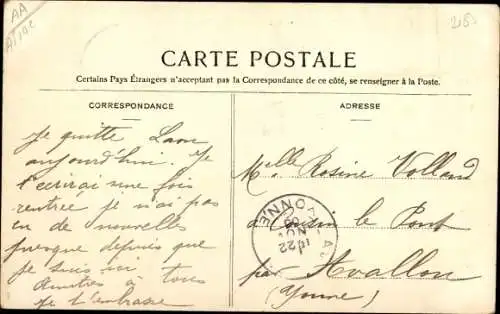 AA
Aisne
CARTE POSTALE
Certains Pays Étrangers n'acceptant pas la Correspondance de ce côté, se renseigner à la Poste.
CORRESPONDANCE
Je quitte Laon
aujourd'hui. Je
t'écrirai une fois
rentrée je n'ai pas
eu de nouvelles
presque depuis que
je suis ici
Amitiés à tous
Je t'embrasse
ADRESSE
Melle Rosine Volland
à Cousin le Pont
par Avallon
(Yonne)
YONNE
22
09